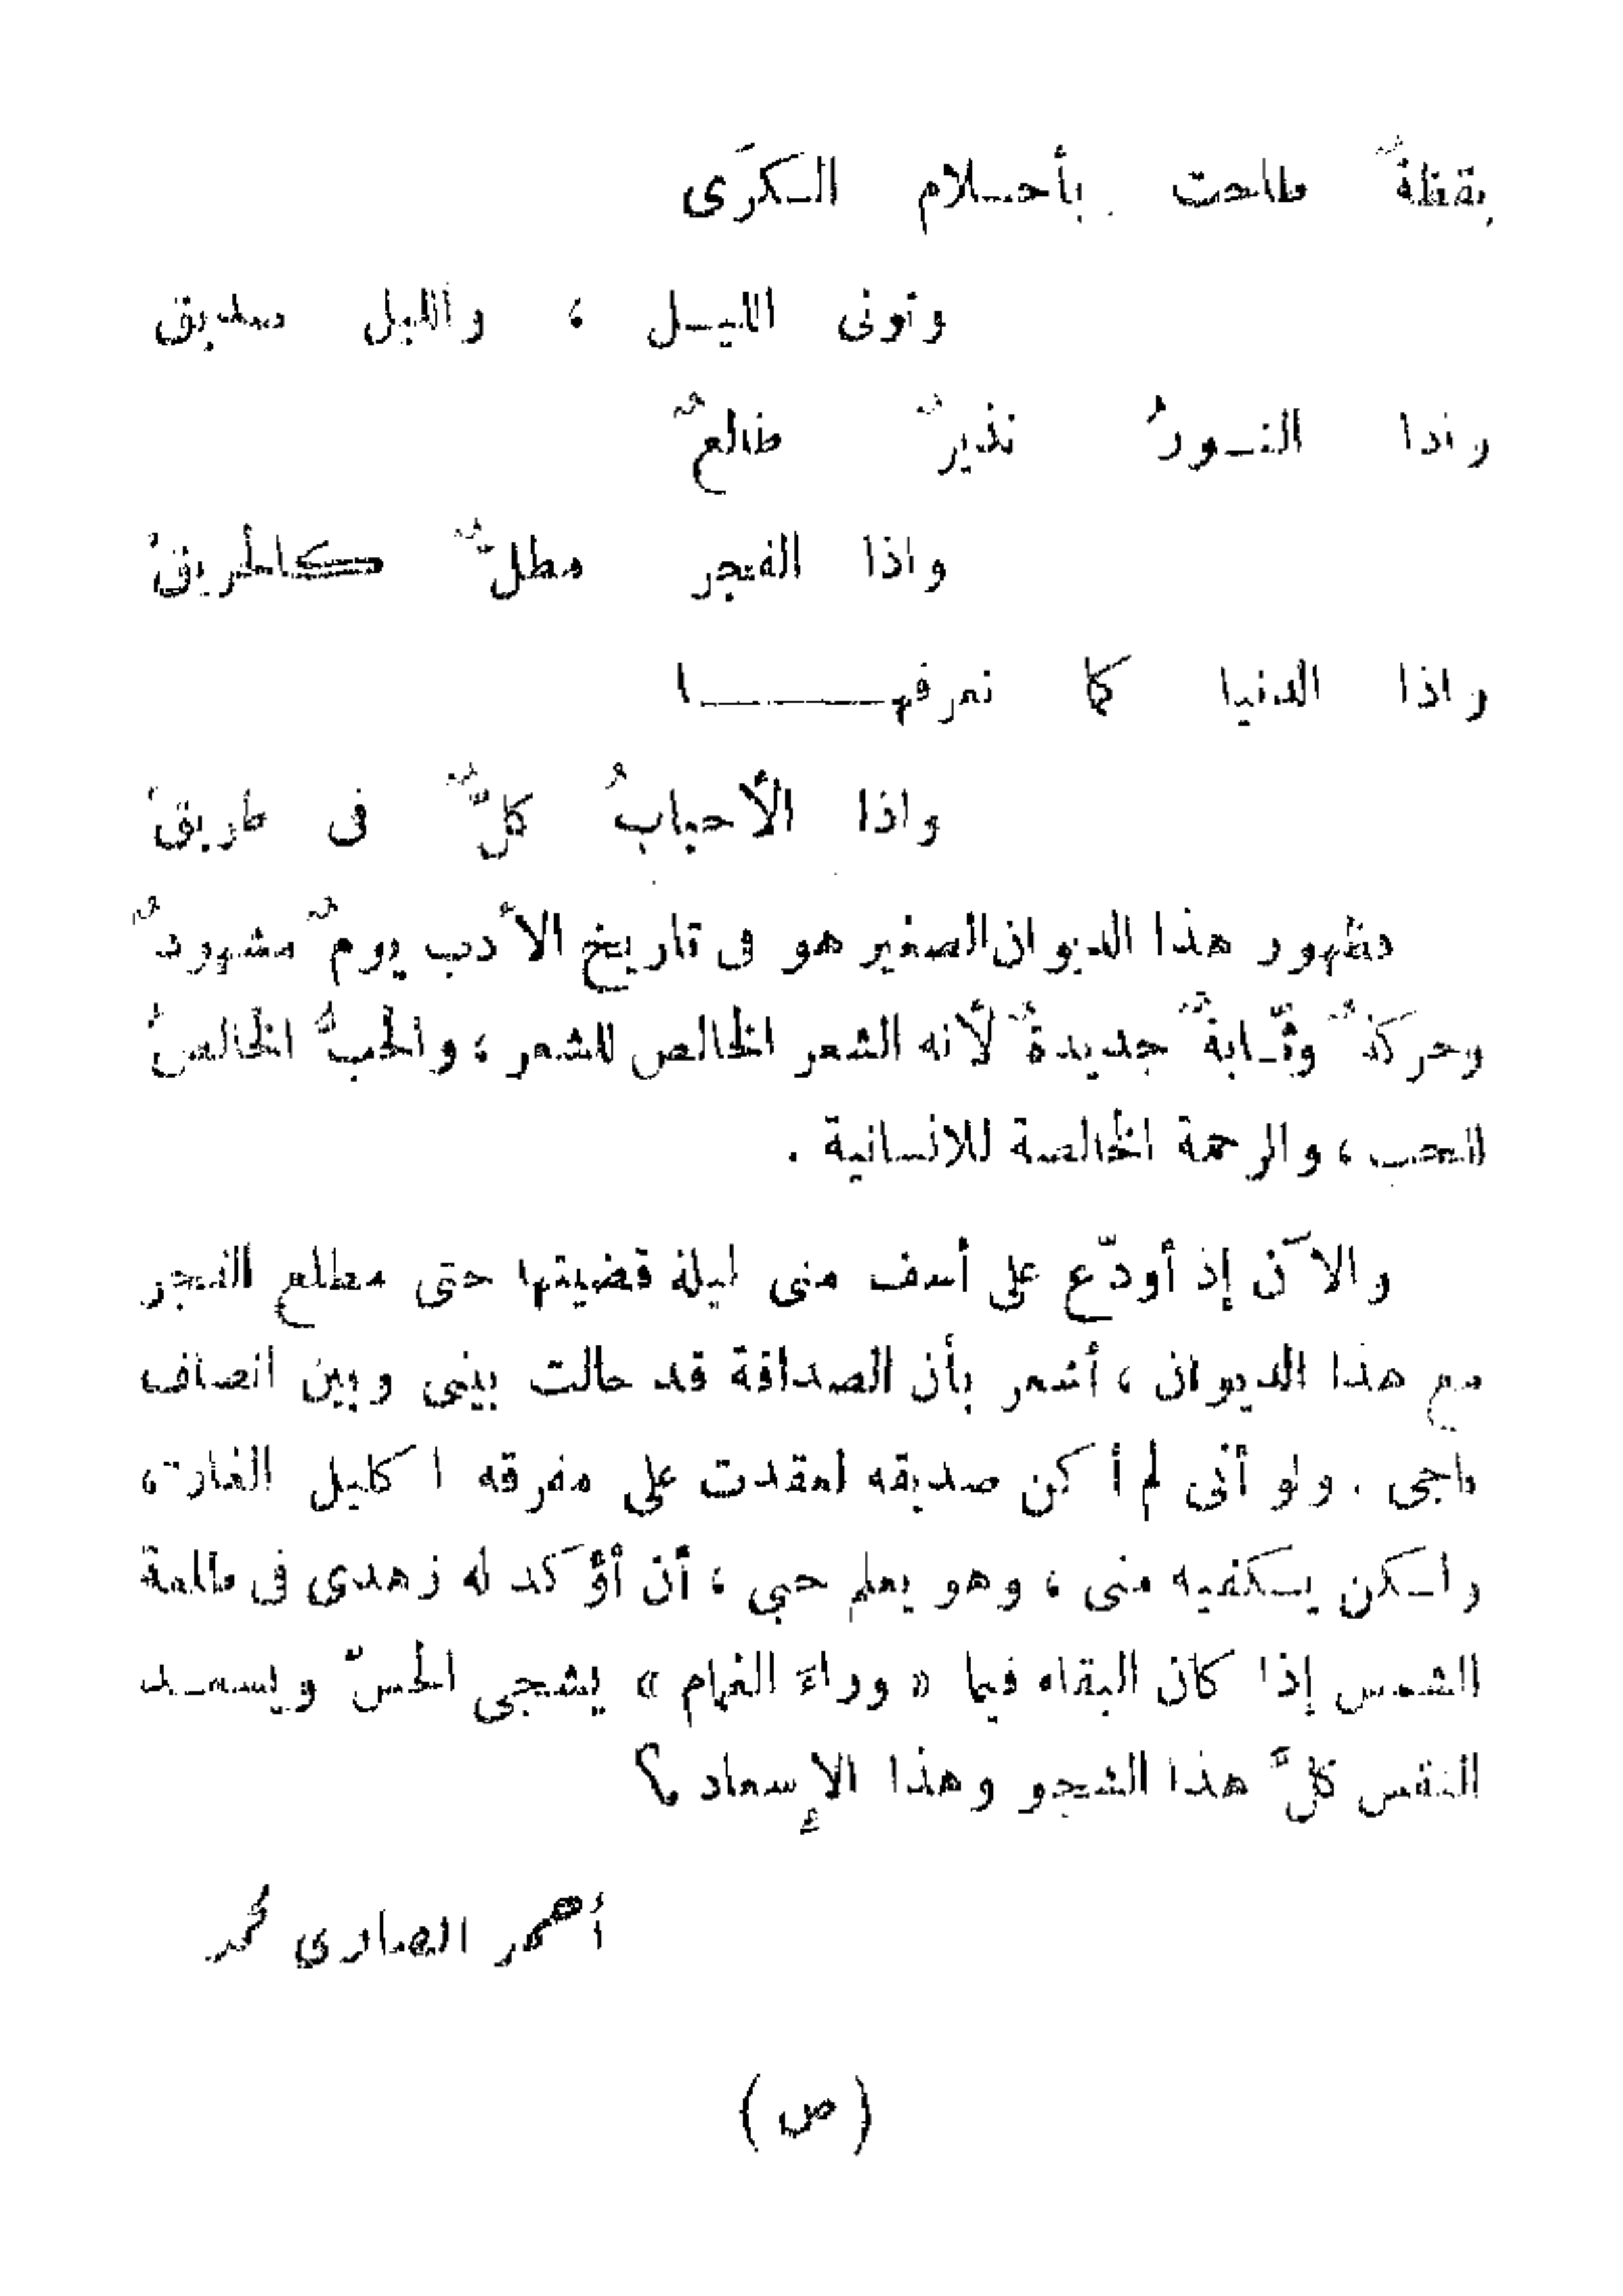 يقظةٌ طاحت بأحلام الكرَى
وتولى الليل ، والليل صديق
واذا النورُ نذيرٌ طالعٌ
واذا الفجر مطلٌّ كالحريقْ
واذا الدنيا كما نعرفها
واذا الأحبابُ كلٌّ فى طريقْ
فظهور هذا الديوان الصغير هو فى تاريخ الأدب يومٌ مشهودٌ
وحركةٌ وثّابةٌ جديدةٌ لأنه الشعر الخالص للشعر ، والحبُّ الخالصُ
للحب ، والرحمة الخالصة للانسانية .
والآن إذ أودّع على أسف منى ليلة قضيتها حتى مطلع الفجر
مع هذا الديوان ، أشعر بأن الصداقة قد حالت بينى وبين انصاف
ناجى . ولو أنى لم أكن صديقه لعقدت على مفرقه اكليل الغار ،
ولكن يكفيه منى ، وهو يعلم حبي ، أن أؤكد له زهدى فى طلعة
الشمس إذا كان البقاء فيما « وراء الغمام » يشجى الحسّ ويسعد
النفس كلَّ هذا الشجو وهذا الإسعاد ؟
أحمد الصاوى محمد
( ص )